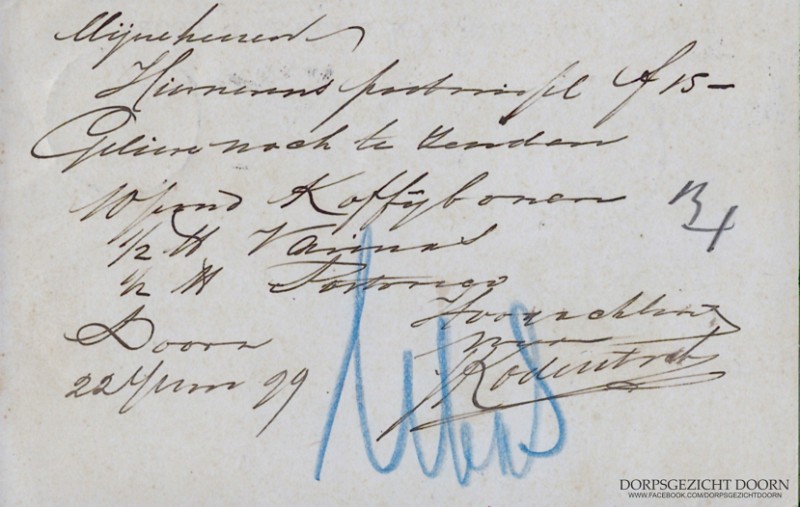 Mijneheeren
Hiernevens postwissel f 15-
Gelieve noch te zenden
10 pond Koffijboonen
1/2 ℔ Varinas
1/2 ℔ Portorico
Doorn
22 Juni 99
Hoogachtend
DORPSGEZICHT DOORN
WWW.FACEBOOK.COM/DORPSGEZICHTDOORN